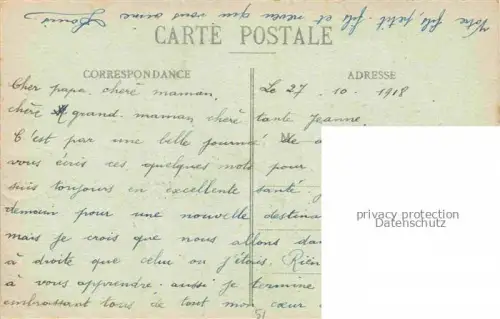 Votre fils, petit-fils et neveu qui vous aime
Louis
CARTE POSTALE
CORRESPONDANCE
ADRESSE
Le 27 - 10 - 1918
Cher papa, chère maman,
chère grand-maman chère tante Jeanne,
C'est par une belle journée de
vous écris ces quelques mots pour
suis toujours en excellente santé
demain pour une nouvelle destina
mais je crois que nous allons dan
à droite que celui ou j'étais. Rien
à vous apprendre. aussi je termine
embrassant tous de tout mon cœur
51
privacy protection
Datenschutz